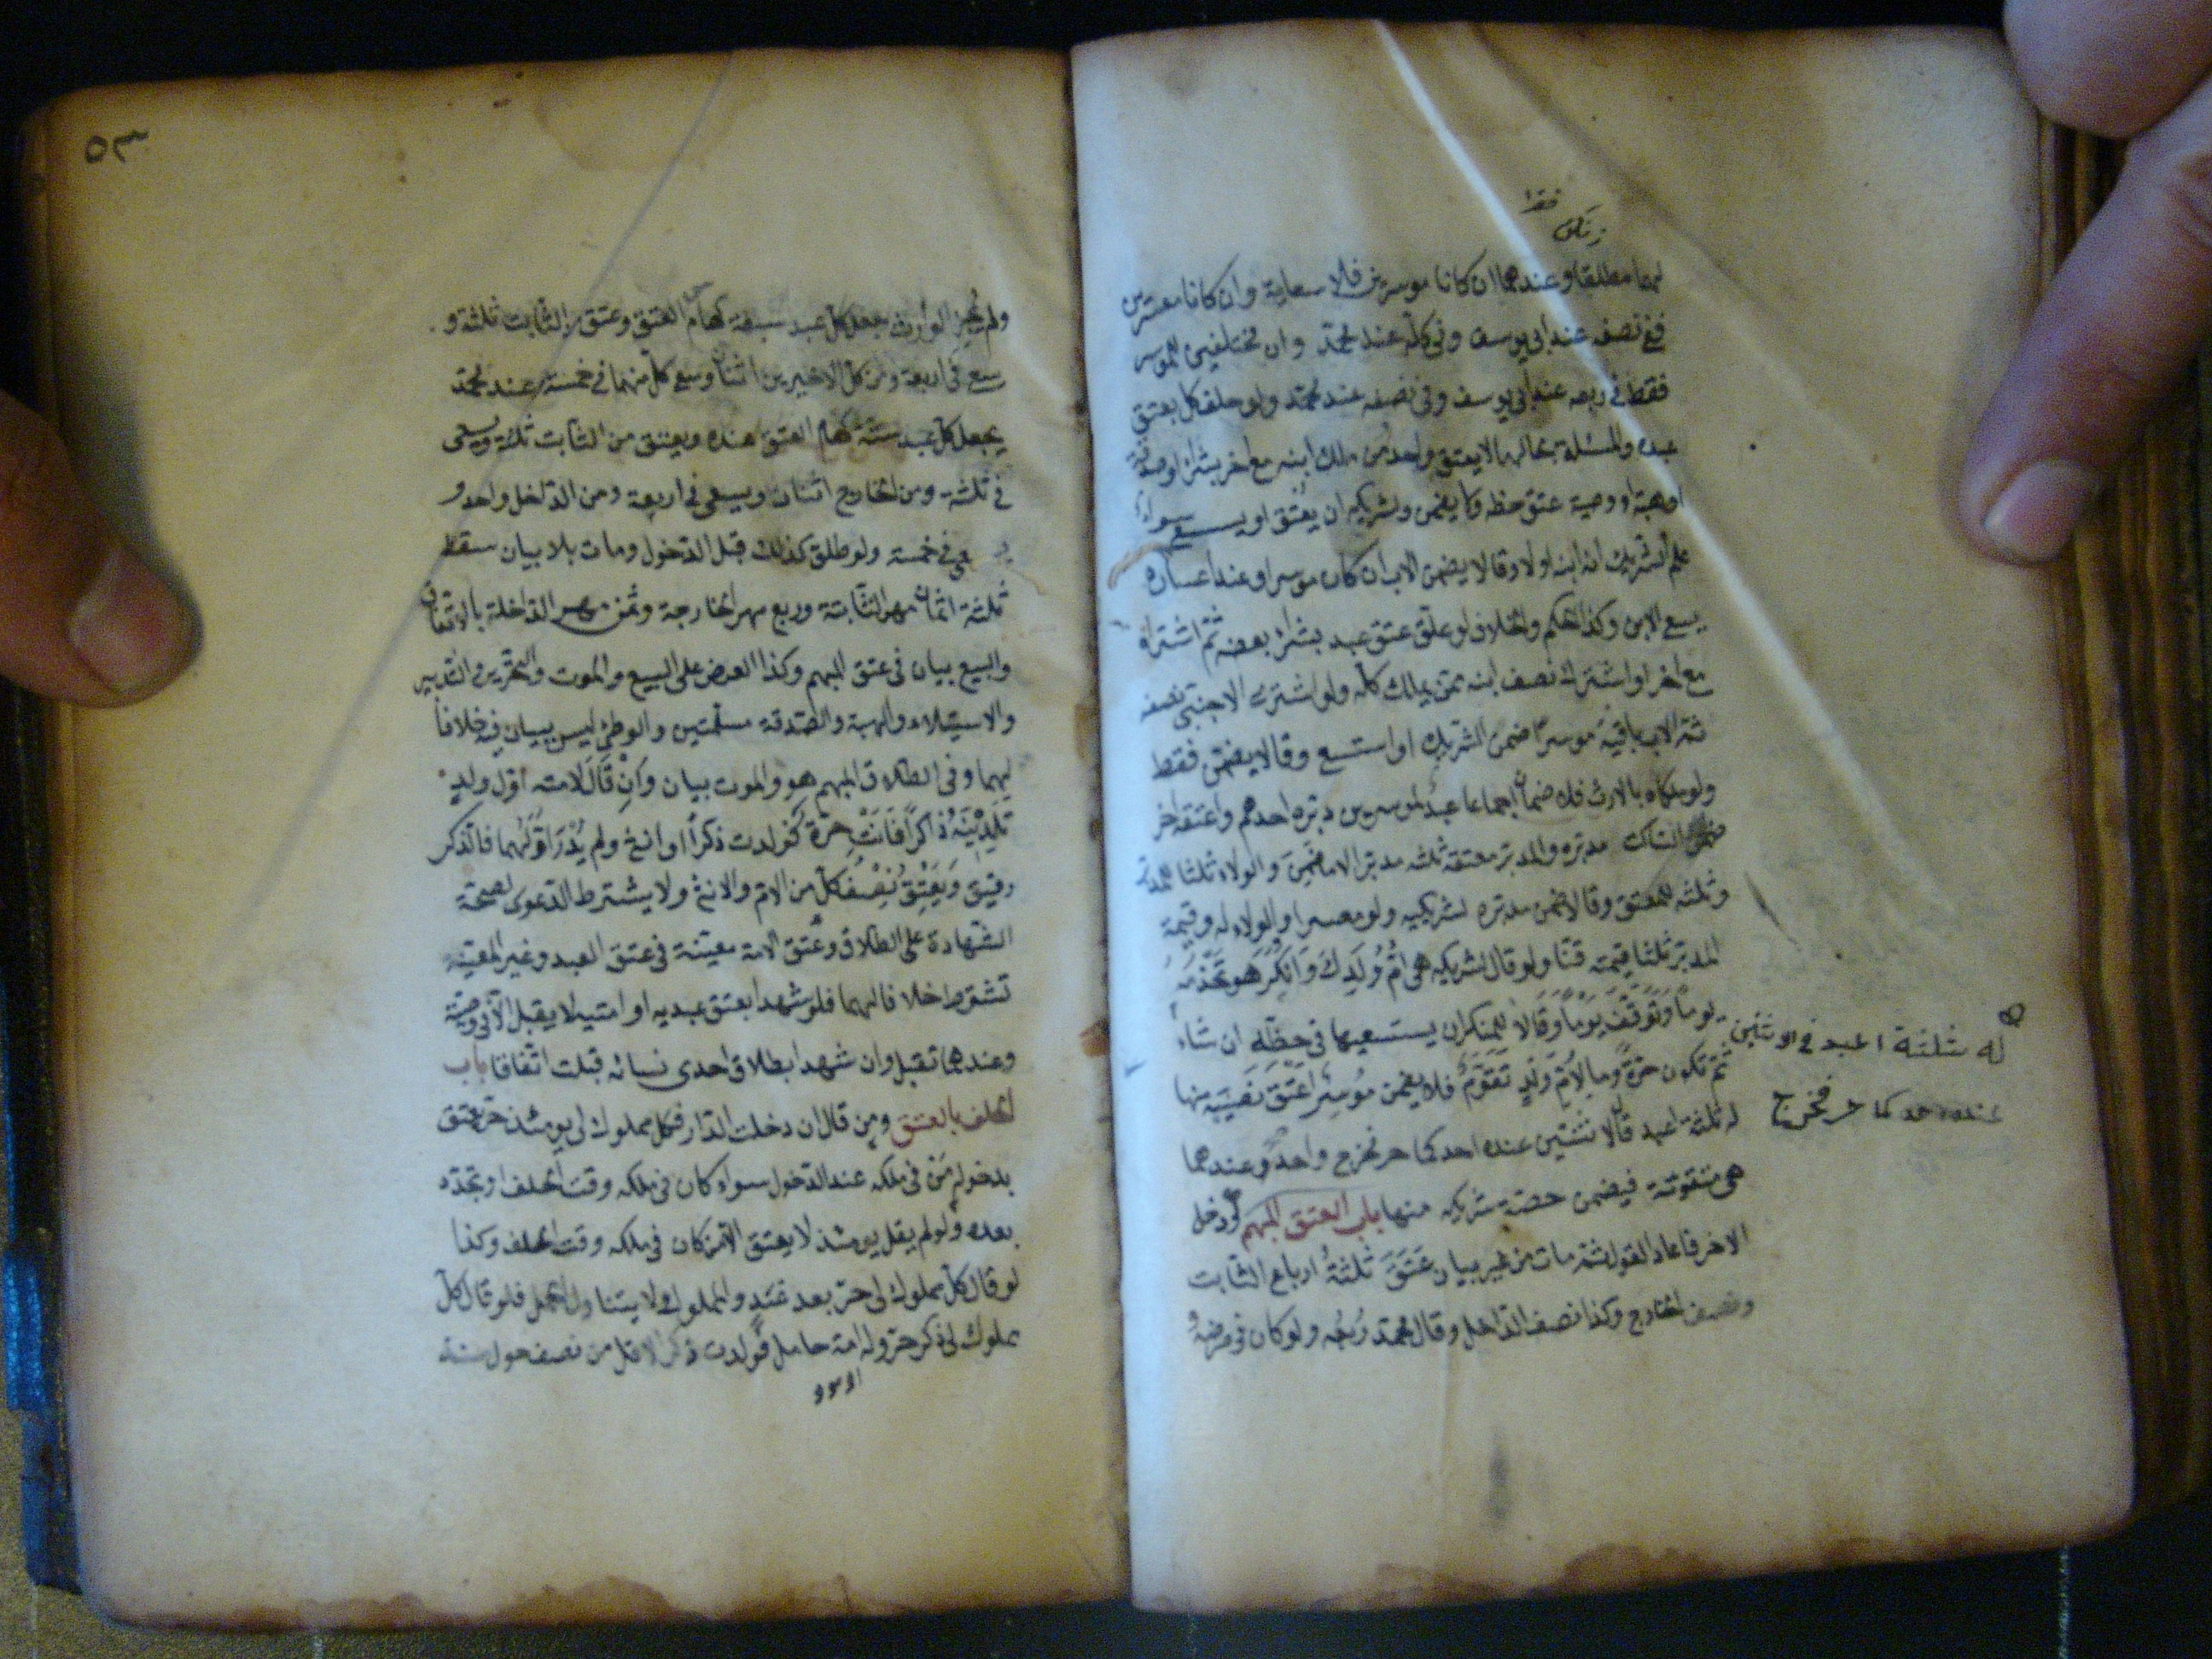 فقرا
زنكين
لهما مطلقا وعندهما ان كانا موسرين فلا سعاية وان كانا معسرين
ففي نصفه عند ابي يوسف وفي كله عند محمد وان مختلفين للموسر
فقط في ربعه عند ابي يوسف وفي نصفه عند محمد ولو حلف كل بعتق
عبده والمسئلة بحالها لا يعتق واحد ومن ملك ابنه مع اخر بشراء او صدقة
او هبة او وصية عتق حظه ولا يضمن ولشريكه ان يعتق او يسـع سواء
علم الشريك انه ابنه اولا وقالا يضمن الاب ان كان موسرا وعند اعساره
يسع الابن وكذا الحكم والخلاف لو علق عتق عبد بشراء بعضه ثم اشتراه
مع اخر او اشترى نصف ابنه ممن يملك كله ولو اشترى الاجنبي نصفه
ثم الاب باقيه موسرا ضمن الشريك او استسع وقالا يضمن فقط
ولو ملكاه بالارث فلا ضمان اجماعا عبد لموسرين دبره احدهم واعتقه اخر
ضمن الساكت مدبره والمدبر معتقه ثلثه مدبرا لا ما ضمن والولاء ثلثا للمدبر
وثلثه للمعتق وقالا ضمن مدبره لشريكيه ولو معسرا والولاء له وقيمة
المدبر ثلثا قيمته قنا ولو قال لشريكه هي ام ولدك وانكر هو تخدمه
يوما وتوقف يوما وقالا للمنكر ان يستسعيها في حظه ان شاء
ثم تكون حرة وما لام ولد تقوم فلا يضمن موسر اعتق نصيبه منها
له ثلثة اعبد قال لاثنين عنده احدكما حر فخرج واحد وعندهما
هي متقومة فيضمن حصة شريكه منها باب العتق المبهم ودخل
الاخر فاعاد القول ثم مات من غير بيان عتق ثلثة ارباع الثابت
ونصف الخارج وكذا نصف الداخل وقال محمد ربعه ولو كان في مرضه و
له ثلثة اعبد فقال لاثنين
عنده احدكما حر فخرج
٥٣
ولم يجز الوارث جعل كل عبد سبعة كسهام العتق وعتق من الثابت ثلثة و
سع في اربعة ومن كل الاخيرين اثنان وسع كل منهما في خمسة وعند محمد
يجعل كل عبد ستة كسهام العتق عنده ويعتق من الثابت ثلثة ويسعى
في ثلثة ومن الخارج اثنان ويسعى في اربعة ومن الداخل واحد و
يسعى في خمسة ولو طلق كذلك قبل الدخول ومات بلا بيان سقط
ثلثة اثمان مهر الثابتة وربع مهر الخارجة وثمن مهر الداخلة بالاتفاق
والبيع بيان في عتق المبهم وكذا العرض على البيع والموت والتحرير والتدبير
والاستيلاد والهبة والصدقة مسلمتين والوطئ ليس ببيان فيه خلافا
لهما وفي الطلاق المبهم هو والموت بيان وان قال لامته اول ولد
تلدينه ذكرا فانت حرة فولدت ذكرا وانثى ولم يدر اولهما فالذكر
رقيق ويعتق نصف كل من الام والانثى ولا يشترط الدعوى لصحة
الشهادة على الطلاق وعتق الامة معينة في عتق العبد وغير المعينة
تشترط خلافا لهما فلو شهدا بعتق عبديه او امتيه لا يقبل الا في وصية
وعندهما تقبل وان شهدا بطلاق احدى نسائه قبلت اتفاقا باب
الحلف بالعتق ومن قال ان دخلت الدار فكل مملوك لي يومئذ حر عتق
بدخوله من في ملكه عند الدخول سواء كان في ملكه وقت الحلف او تجدد
بعده ولو لم يقل يومئذ لا يعتق الا من كان في ملكه وقت الحلف وكذا
لو قال كل مملوك لي حر بعد غد والمملوك لا يتناول الحمل فلو قال كل
مملوك لي ذكر حر وله امة حامل فولدت ذكرا لاقل من نصف حول منذ